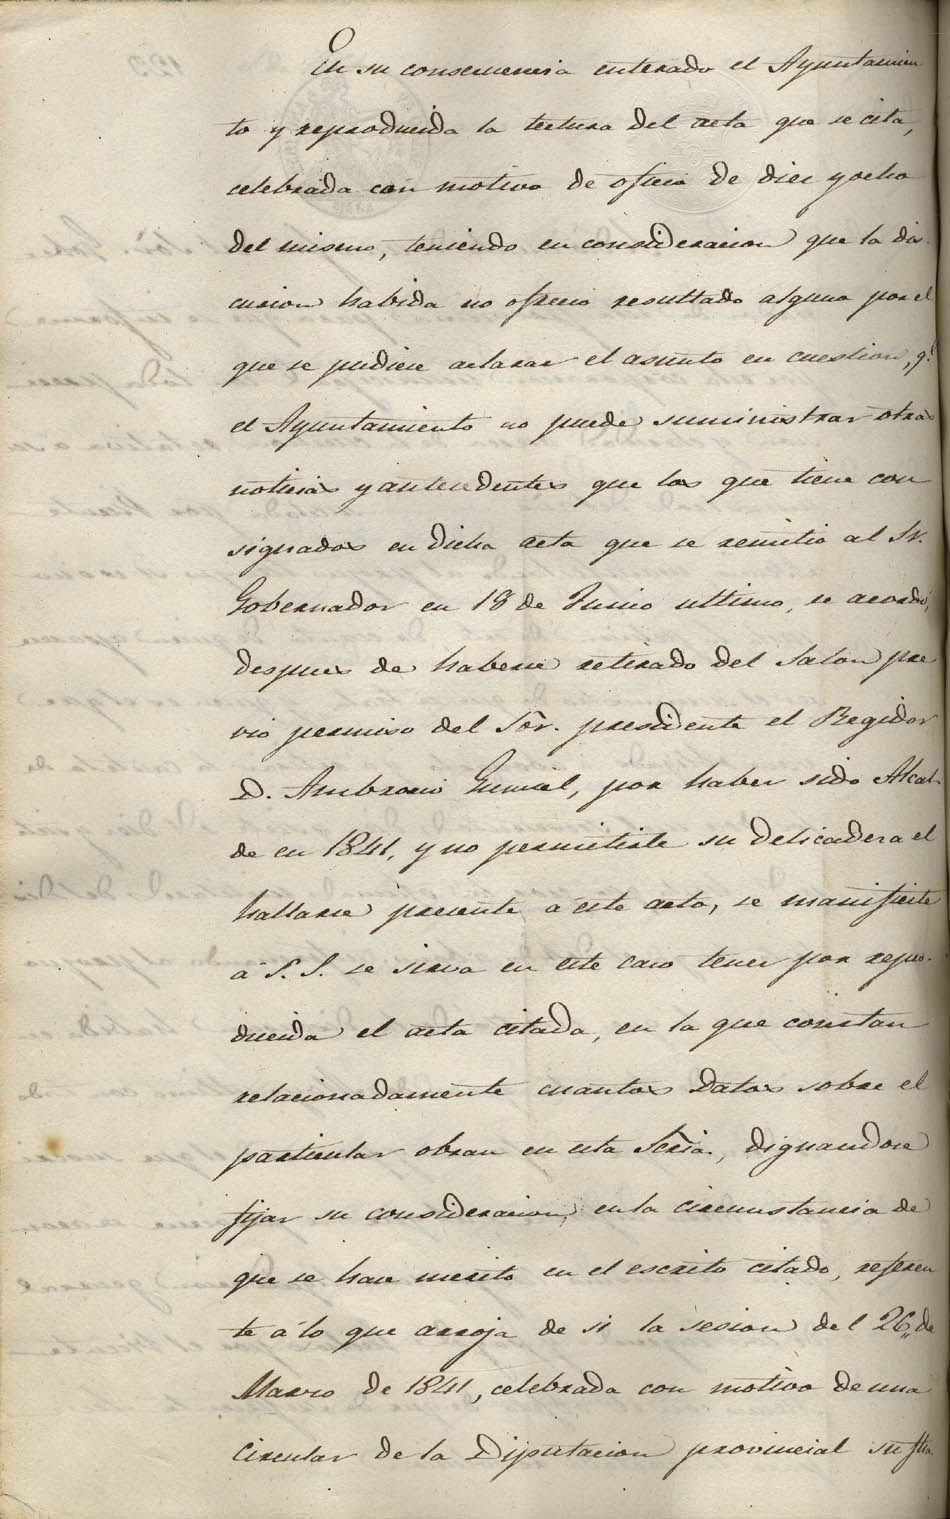 En su consecuencia enterado el Ayuntamien
to y reproducida la lectura del acta que se cita,
celebrada con motivo de oficio de diez y ocho
del mismo, teniendo en consideracion que la dis-
cusion habida no ofrecio resultado alguno por el
que se pudiese aclarar el asunto en cuestion, q.e
el Ayuntamiento no puede suministrar otras
noticias y antecedentes que los que tiene con
signados en dicha acta que se remitio al Sr.
Gobernador en 18 de Junio ultimo, se acordó,
despues de haberse retirado del Salon pre
vio permiso del Sôr. presidente el Regidor
D. Ambrosio por haber sido Alcal-
de en 1841, y no permitirle su delicadeza el
hallarse presente a este acto, se manifieste
á S. S. se sirva en este caso tener por repro-
ducida el acta citada, en la que constan
relacionadamente cuantos datos sobre el
particular obran en esta Sria., dignandose
fijar su consideracion, en la circunstancia de
que se hace merito en el escrito citado, referen
te á lo que arroja de si la sesion del 26,, de
Marzo de 1841, celebrada con motivo de una
circular de la Diputacion provincial su fha.